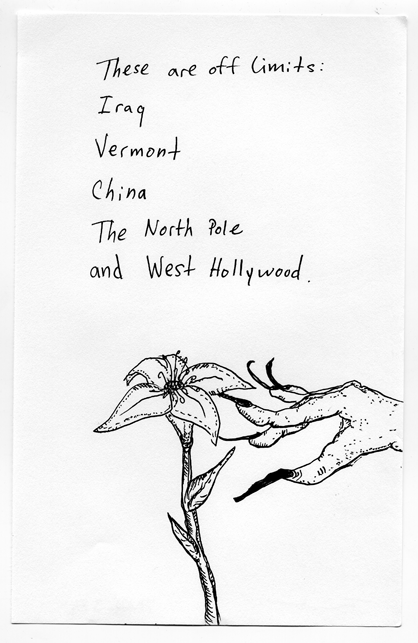 These are off limits:
Iraq
Vermont
China
The North Pole
and West Hollywood.